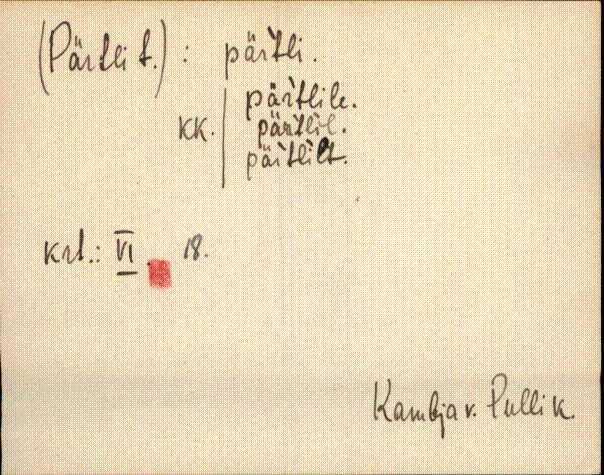 (Pärtli t.) : pär̀tli.
pär̀tlile.
kk. pär̀tlil.
pär̀tlilt.
krt.: VI. 18.
Kambja v. Pulli k.